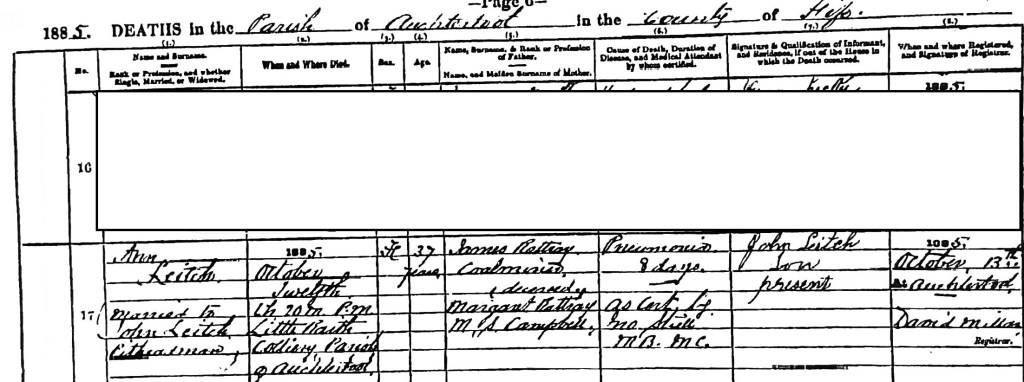 —Page 6—
1885. DEATHS in the Parish of Auchtertool in the County of Fife.
(1.) (2.) (3.) (4.) (5.) (6.) (7.) (8.)
No.
Name and Surname.
Rank or Profession, and whether
Single, Married, or Widowed.
When and Where Died.
Sex.
Age.
Name, Surname, & Rank or Profession
of Father.
Name, and Maiden Surname of Mother.
Cause of Death, Duration of
Disease, and Medical Attendant
by whom certified.
Signature & Qualification of Informant,
and Residence, if out of the House in
which the Death occurred.
When and where Registered,
and Signature of Registrar.
1885.
16
17
Ann
Leitch
Married to
John Leitch
1885
October
Twelfth
20m P.M.
Little Raith
Colliery Parish
of Auchtertool
F
37
years
James Rattray
Coalminer
deceased
Margaret Rattray
M.S. Campbell
Pneumonia
8 days.
As Cert by
MB. MC.
John Leitch
son
present
1885.
October 13th
At Auchtertool
David Miller
Registrar.